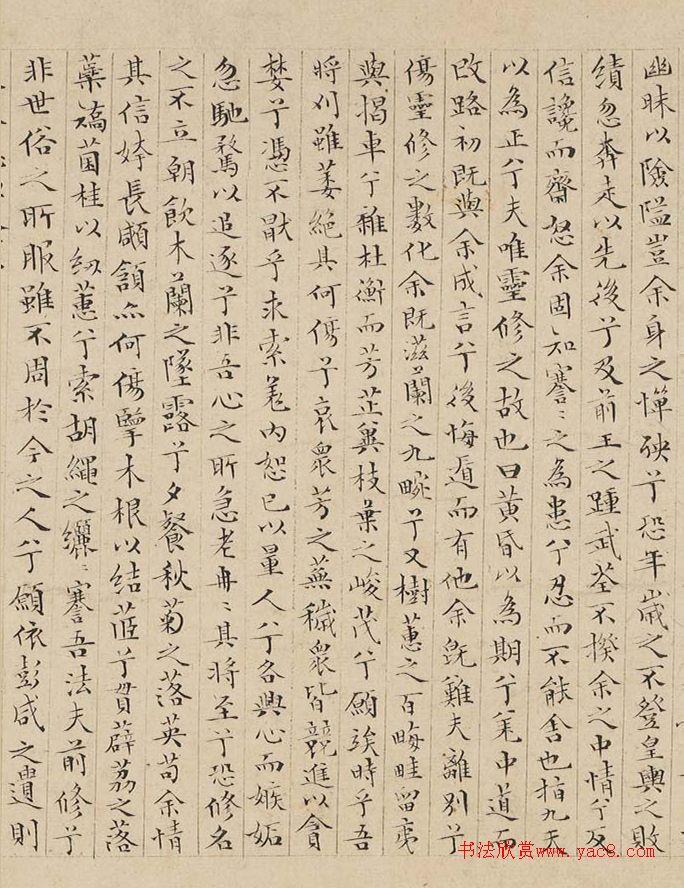 幽昧以險隘豈余身之憚殃兮恐年歲之不登皇輿之敗
績忽奔走以先後兮及前王之踵武荃不揆余之中情兮反
信讒而齋怒余固知謇〻之為患兮忍而不能舍也指九天
以為正兮夫唯靈修之故也曰黃昏以為期兮羌中道而
改路初既與余成言兮後悔遁而有他余既難夫離別兮
傷靈修之數化余既滋蘭之九畹兮又樹蕙之百畮畦留夷
與揭車兮雜杜衡而芳芷冀枝葉之峻茂兮願竢時乎吾
將刈雖萎絕其何傷兮哀眾芳之蕪穢眾皆競進以貪
婪兮憑不猒乎求索羌內恕己以量人兮各興心而嫉妬
忽馳騖以追逐兮非吾心之所急老冉〻其將至兮恐修名
之不立朝飲木蘭之墜露兮夕餐秋菊之落英苟余情
其信姱長顑頷亦何傷擥木根以結茝兮貫薜荔之落
蘂矯菌桂以紉蕙兮索胡繩之纚〻謇吾法夫前修兮
非世俗之所服雖不周於今之人兮願依彭咸之遺則
书法欣赏www.yac8.com